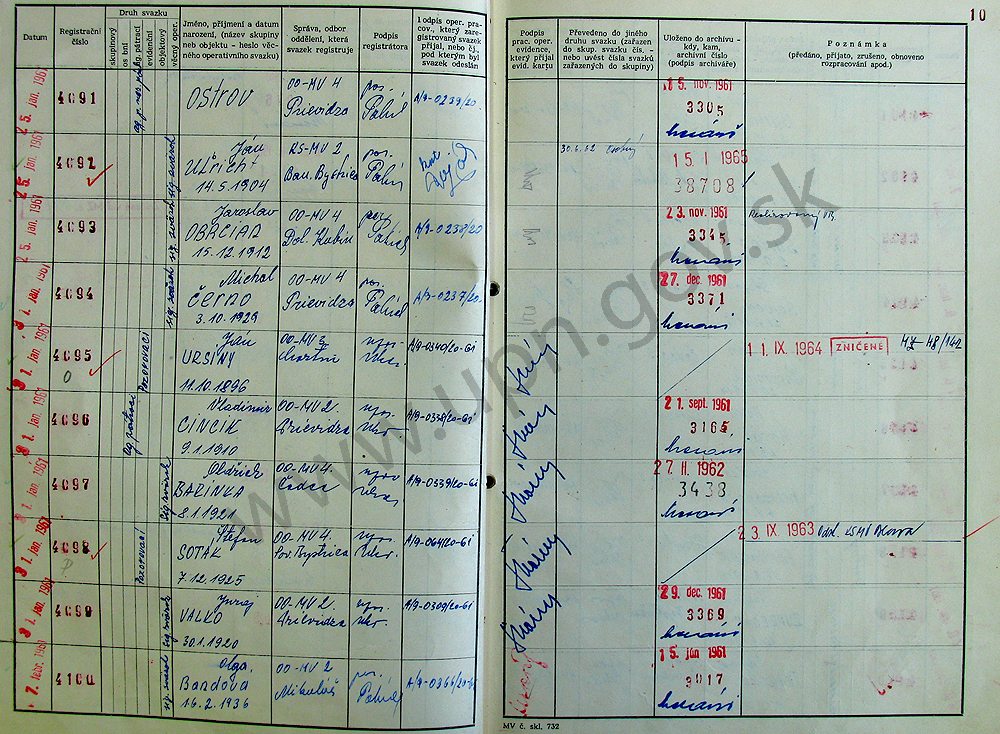 10
Datum
Registrační číslo
Druh svazku
skupinový
osobní
ag. pátrací
evidenční
objektový
věcný oper.
Jméno, příjmení a datum narození, (název skupiny neb objektu - heslo věcného operativního svazku)
Správa, odbor oddělení, která svazek registruje
Podpis registrátora
Podpis oper. pracov., který zaregistrovaný svazek přijal, nebo čj., pod kterým byl svazek odeslán
Podpis prac. oper. evidence, který přijal evid. kartu
Převedeno do jiného druhu svazku (zařazen do skup. svazku čís. - nebo uvést čísla svazků zařazených do skupiny)
Uloženo do archivu - kdy, kam, archivní číslo (podpis archiváře)
Poznámka
(předáno, přijato, zrušeno, obnoveno rozpracování apod.)
25. jan. 1961
4091
OSTROV
OO-MV 4
Prievidza
A/9-0239/20.
15. nov. 1961
3305
25. jan. 1961
4092
Ján
ULŘICH
14.5.1904
KS-MV 2
Ban. Bystrica
30.6.62
Osobný
15. I 1965
38708
25. jan. 1961
4093
Jaroslav
OBRCIAN
15.12.1912
OO-MV 4
Dol. Kubín
A/9-0238/20
23. nov. 1961
3345
31. jan. 1961
4094
Michal
ČERNO
3.10.1929
OO-MV 4
Prievidza
A/9-0237/20.
27. dec. 1961
3371
31. jan. 1961
4095
O
Pozorovací
Ján
URSINY
11.10.1896
OO-MV
Martin
A/9-0340/20-Gi
11. IX 1964
ZNIČENÉ
48/142
31. jan. 1961
4096
ag. pátrací
Vladimír
CINCÍK
9.1.1910
OO-MV 2.
Prievidza
A/9-0338/20-Gi
21. sept. 1961
3165
31. jan. 1961
4097
Oldřich
BAŽINKA
8.1.1921
OO-MV 4.
Čadca
A/9-0339/20-Gi
27 II. 1962
3438
31. jan. 1961
4098
P
Pozorovací
Štefan
SOTÁK
7.12.1925
OO-MV 4.
Pov. Bystrica
A/9-064/20-Gi
23. IX 1963
31. jan. 1961
4099
Juraj
VALKO
30.1.1920
OO-MV 2.
Prievidza
A/9-0309/20-Gi
29. dec. 1961
3369
7. febr. 1961
4100
Olga
Bandova
16.2.1936
OO-MV 2
Mikuláš
A/9-0366/20
15. jún 1961
3017
MV č. skl. 732
www.upn.gov.sk